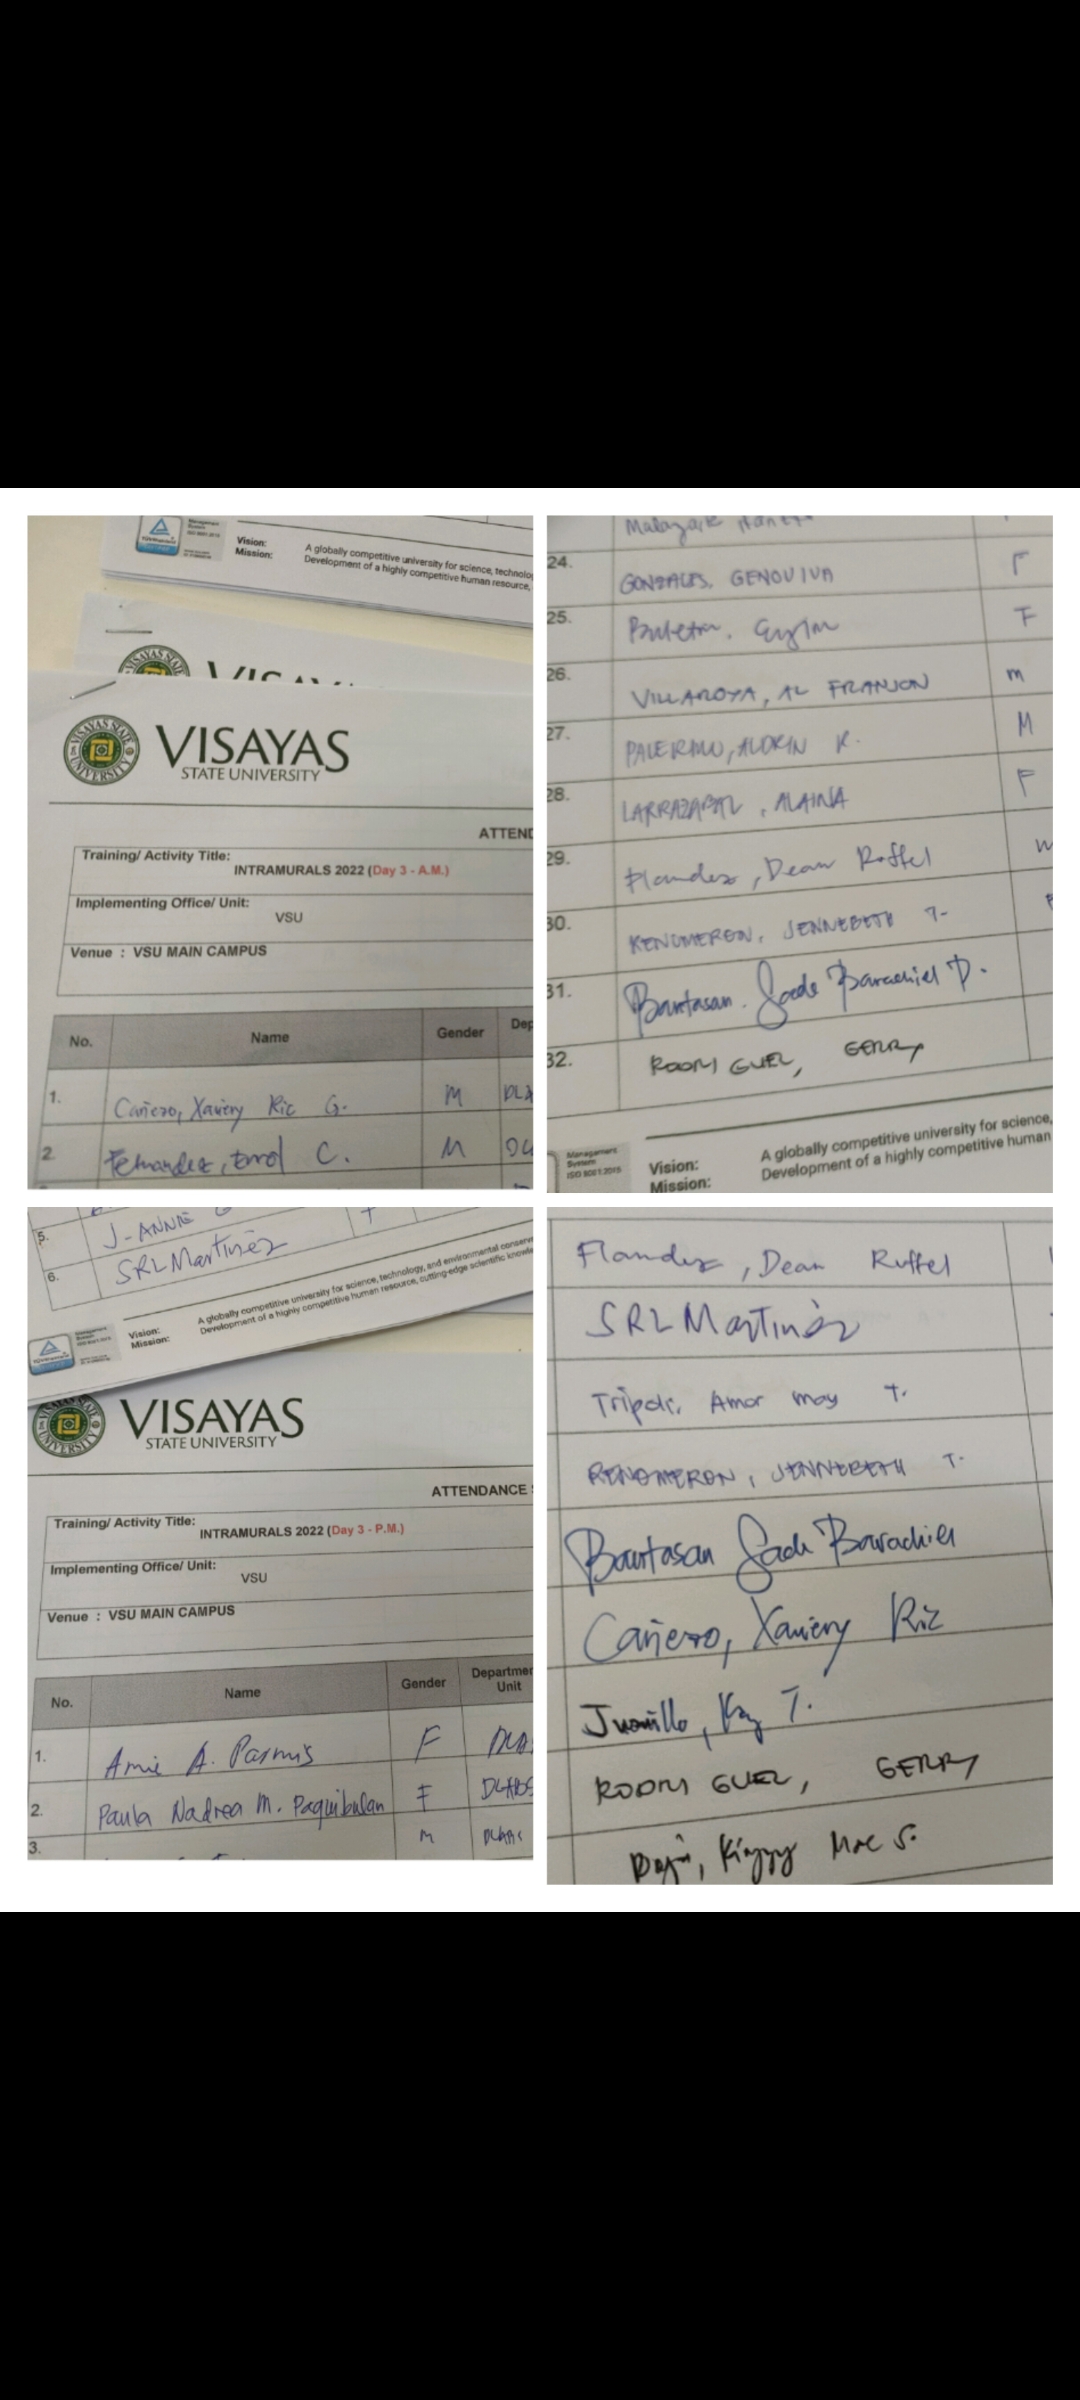 Vision:
Mission:
A globally competitive university for science, technolo
Development of a highly competitive human resource,
VISAYAS
STATE UNIVERSITY
ATTEND
Training/ Activity Title:
INTRAMURALS 2022 (Day 3 - A.M.)
Implementing Office/ Unit:
VSU
Venue : VSU MAIN CAMPUS
No. Name Gender Dep
1. Cañezo, Xaviery Ric G. M DLA
2 Fernandez, Errol C. M
24. GONZALES, GENOVIVA F
25. F
26. VILLAROYA, AL FRANJON M
27. PALERMO, ALDRIN R. M
28. LARRAZABAL, ALAINA F
29. Flandez, Dean Ruffel
30. RENOMERON, JENNEBETH T.
31. Bantasan. Jade Barachiel D.
32. RODRIGUEZ, GERRY
Management
System
ISO 9001:2015
Vision:
Mission:
A globally competitive university for science,
Development of a highly competitive human
5. J-ANNIE
6. SRLMartinez
Vision:
Mission:
A globally competitive university for science, technology, and environmental conserv
Development of a highly competitive human resource, cutting-edge scientific knowle
VISAYAS
STATE UNIVERSITY
ATTENDANCE
Training/ Activity Title:
INTRAMURALS 2022 (Day 3 - P.M.)
Implementing Office/ Unit:
VSU
Venue : VSU MAIN CAMPUS
No. Name Gender Departmen
Unit
1. Amie A. Parmis F
2. Paula Nadrea M. Paquibulan F
3. M
Flandez, Dean Ruffel
SRLMartinez
Tripoli, Amor may T.
RENOMERON, JENNEBETH T.
Bantasan Jade Barachiel
Cañezo, Xaviery Ric
Juanillo, Kay T.
RODRIGUEZ, GERRY